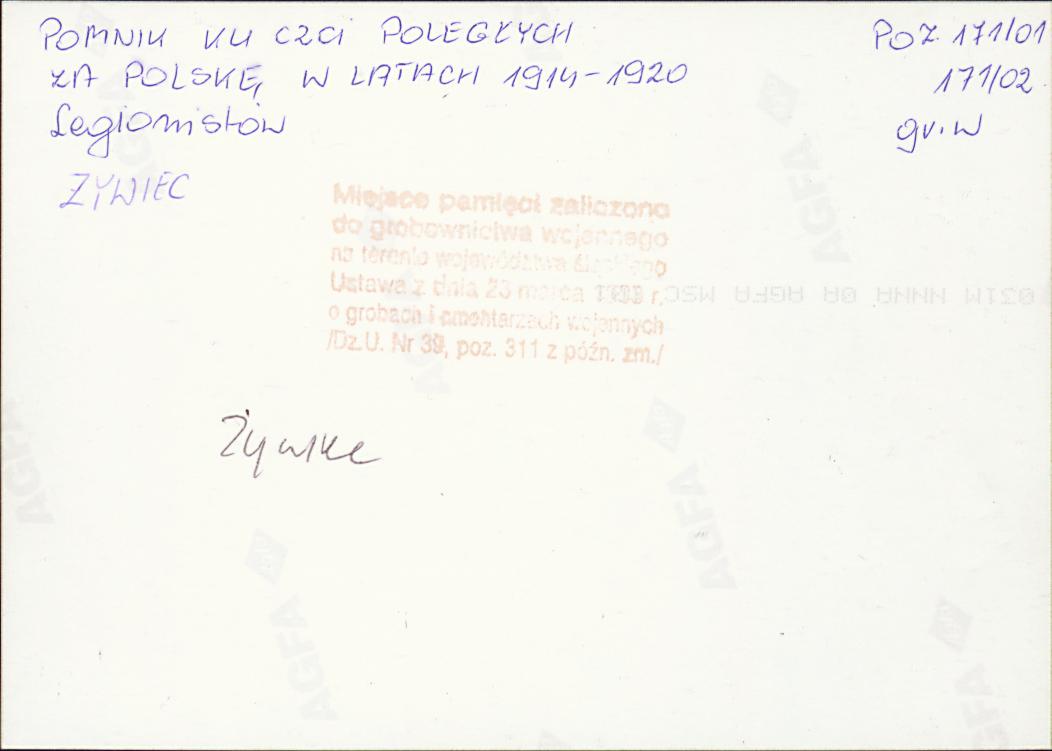 POMNIK KU CZCI POLEGŁYCH
ZA POLSKĘ W LATACH 1914-1920
Legionistów
ŻYWIEC
POZ. 171/01
171/02
gr. W
Miejsce pamięci zaliczono
do grobownictwa wojennego
na terenie województwa śląskiego
Ustawa z dnia 23 marca 1933 r.
o grobach i cmentarzach wojennych
/Dz.U. Nr 39, poz. 311 z późn. zm./
AGFA
AGFA
AGFA
AGFA
AGFA
AGFA
AGFA